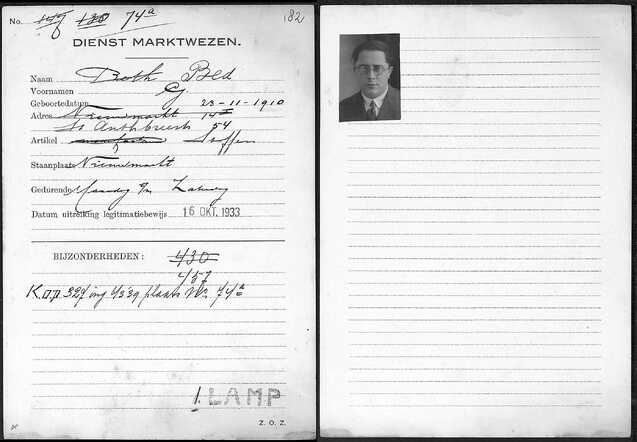 No. 120 74a 182
DIENST MARKTWEZEN.
Naam Both Bed
Voornamen G
Geboortedatum 23-11-1910
Adres Nieuwmarkt 14 II
St Anthbreestr 54
Artikel Stoffen
Staanplaats Nieuwmarkt
Gedurende Maandag t/m Zaterdag
Datum uitreiking legitimatiebewijs 16 OKT. 1933
BIJZONDERHEDEN: 430
457
K.o.p. 327 ing 1/3 '39 plaats No. 74a
1 LAMP
Z. O. Z.